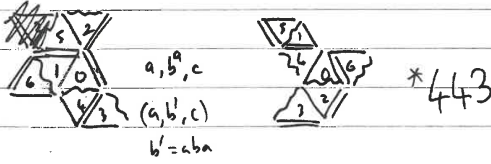 5 2
6 1 0
4 3
a, bᵃ, c
(a, b', c)
b' = aba
5 1
4 0 6
3 2
*443